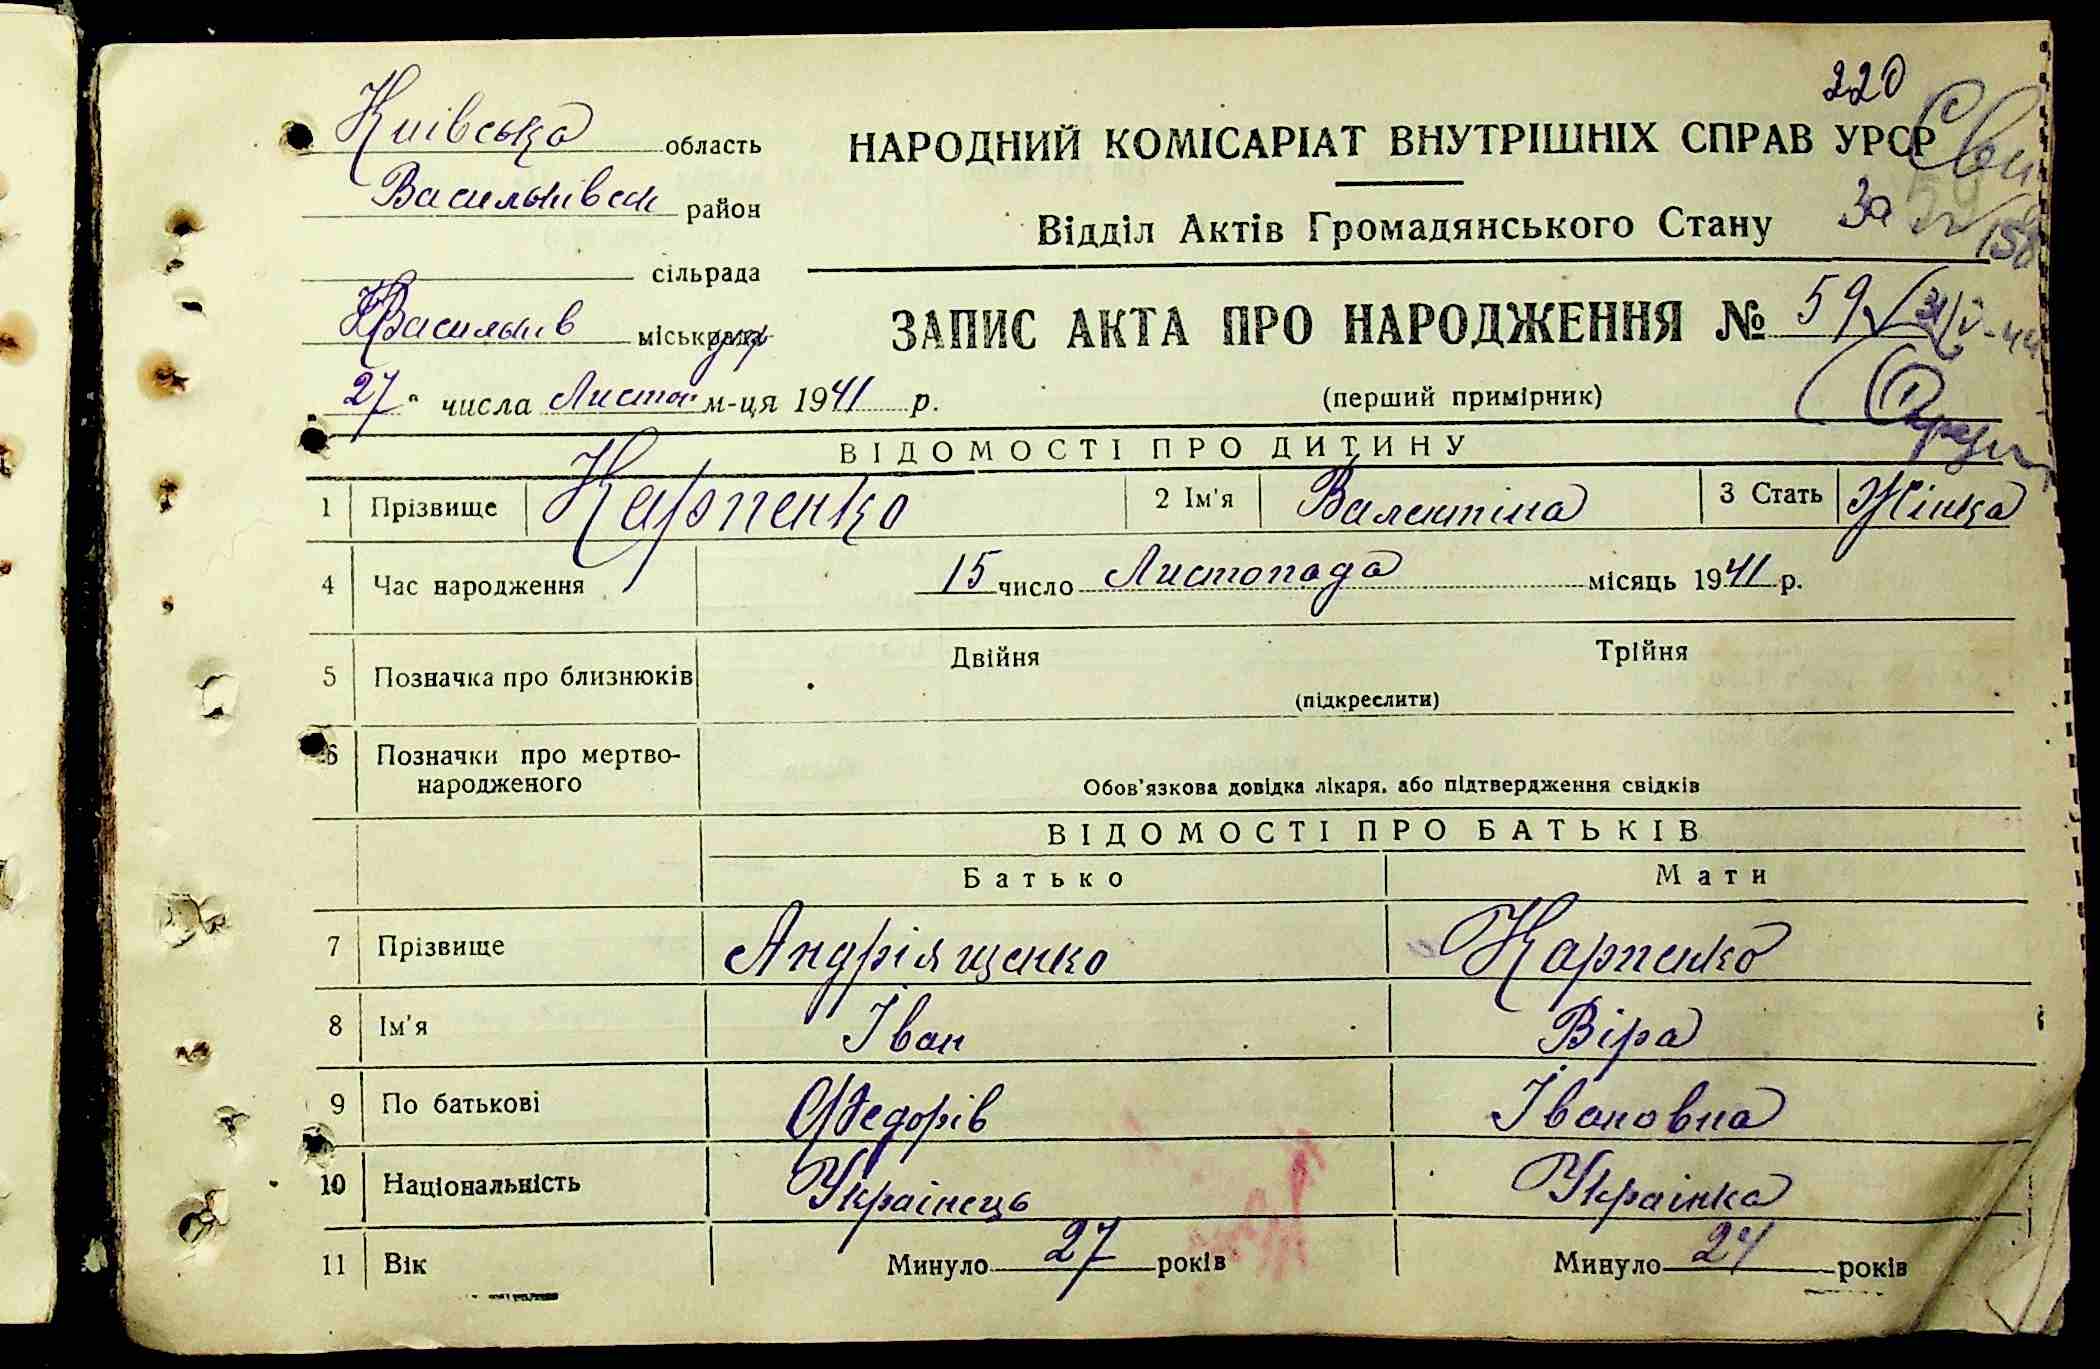 220
Київська область
НАРОДНИЙ КОМІСАРІАТ ВНУТРІШНІХ СПРАВ УРСР
Васильківськ район
Відділ Актів Громадянського Стану
За
сільрада
Васильків міськрада
ЗАПИС АКТА ПРО НАРОДЖЕННЯ № 59
„27" числа Листоп м-ця 1941 р.
(перший примірник)
ВІДОМОСТІ ПРО ДИТИНУ
1 Прізвище Карпенко 2 Ім'я Валентіна 3 Стать Жінка
4 Час народження 15 число Листопада місяць 1941 р.
5 Позначка про близнюків Двійня Трійня
(підкреслити)
6 Позначки про мертво-
народженого
Обов'язкова довідка лікаря, або підтвердження свідків
ВІДОМОСТІ ПРО БАТЬКІВ
Батько Мати
7 Прізвище Андріященко Карпенко
8 Ім'я Іван Віра
9 По батькові Федорів Івановна
10 Національність Українець Українка
11 Вік Минуло 27 років Минуло 24 років